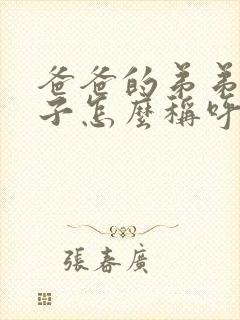 爸爸的弟弟
子怎麼稱呼
張春廣